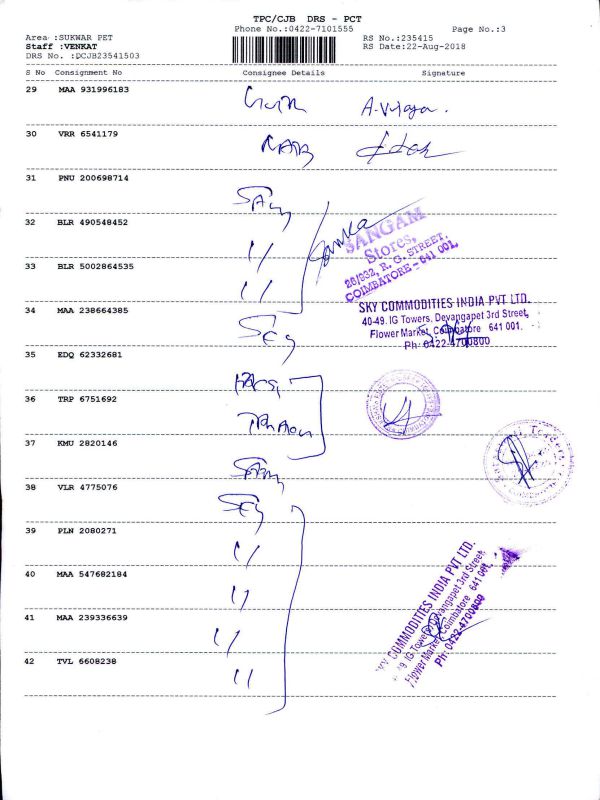 TPC/CJB DRS - PCT
Phone No.:0422-7101555
Page No.:3
Area :SUKWAR PET
RS No.:235415
Staff :VENKAT
RS Date:22-Aug-2018
DRS No. :DCJB23541503
S No Consignment No Consignee Details Signature
29 MAA 931996183
A. Vijaya.
30 VRR 6541179
31 PNU 200698714
32 BLR 490548452 //
SANGAM
Stores,
26/932, R. G. STREET,
COIMBATORE - 641 001.
33 BLR 5002864535 //
34 MAA 238664385
SKY COMMODITIES INDIA PVT LTD.
40-49. IG Towers, Devangapet 3rd Street,
Flower Market, Coimbatore 641 001.
Ph: 0422-4700800
35 EDQ 62332681
36 TRP 6751692
37 KMU 2820146
38 VLR 4775076
39 PLN 2080271 //
40 MAA 547682184 //
41 MAA 239336639 //
42 TVL 6608238 //
SKY COMMODITIES INDIA PVT LTD.
49 IG Towers, Devangapet 3rd Street,
Flower Market, Coimbatore 641 001.
Ph: 0422-4700800